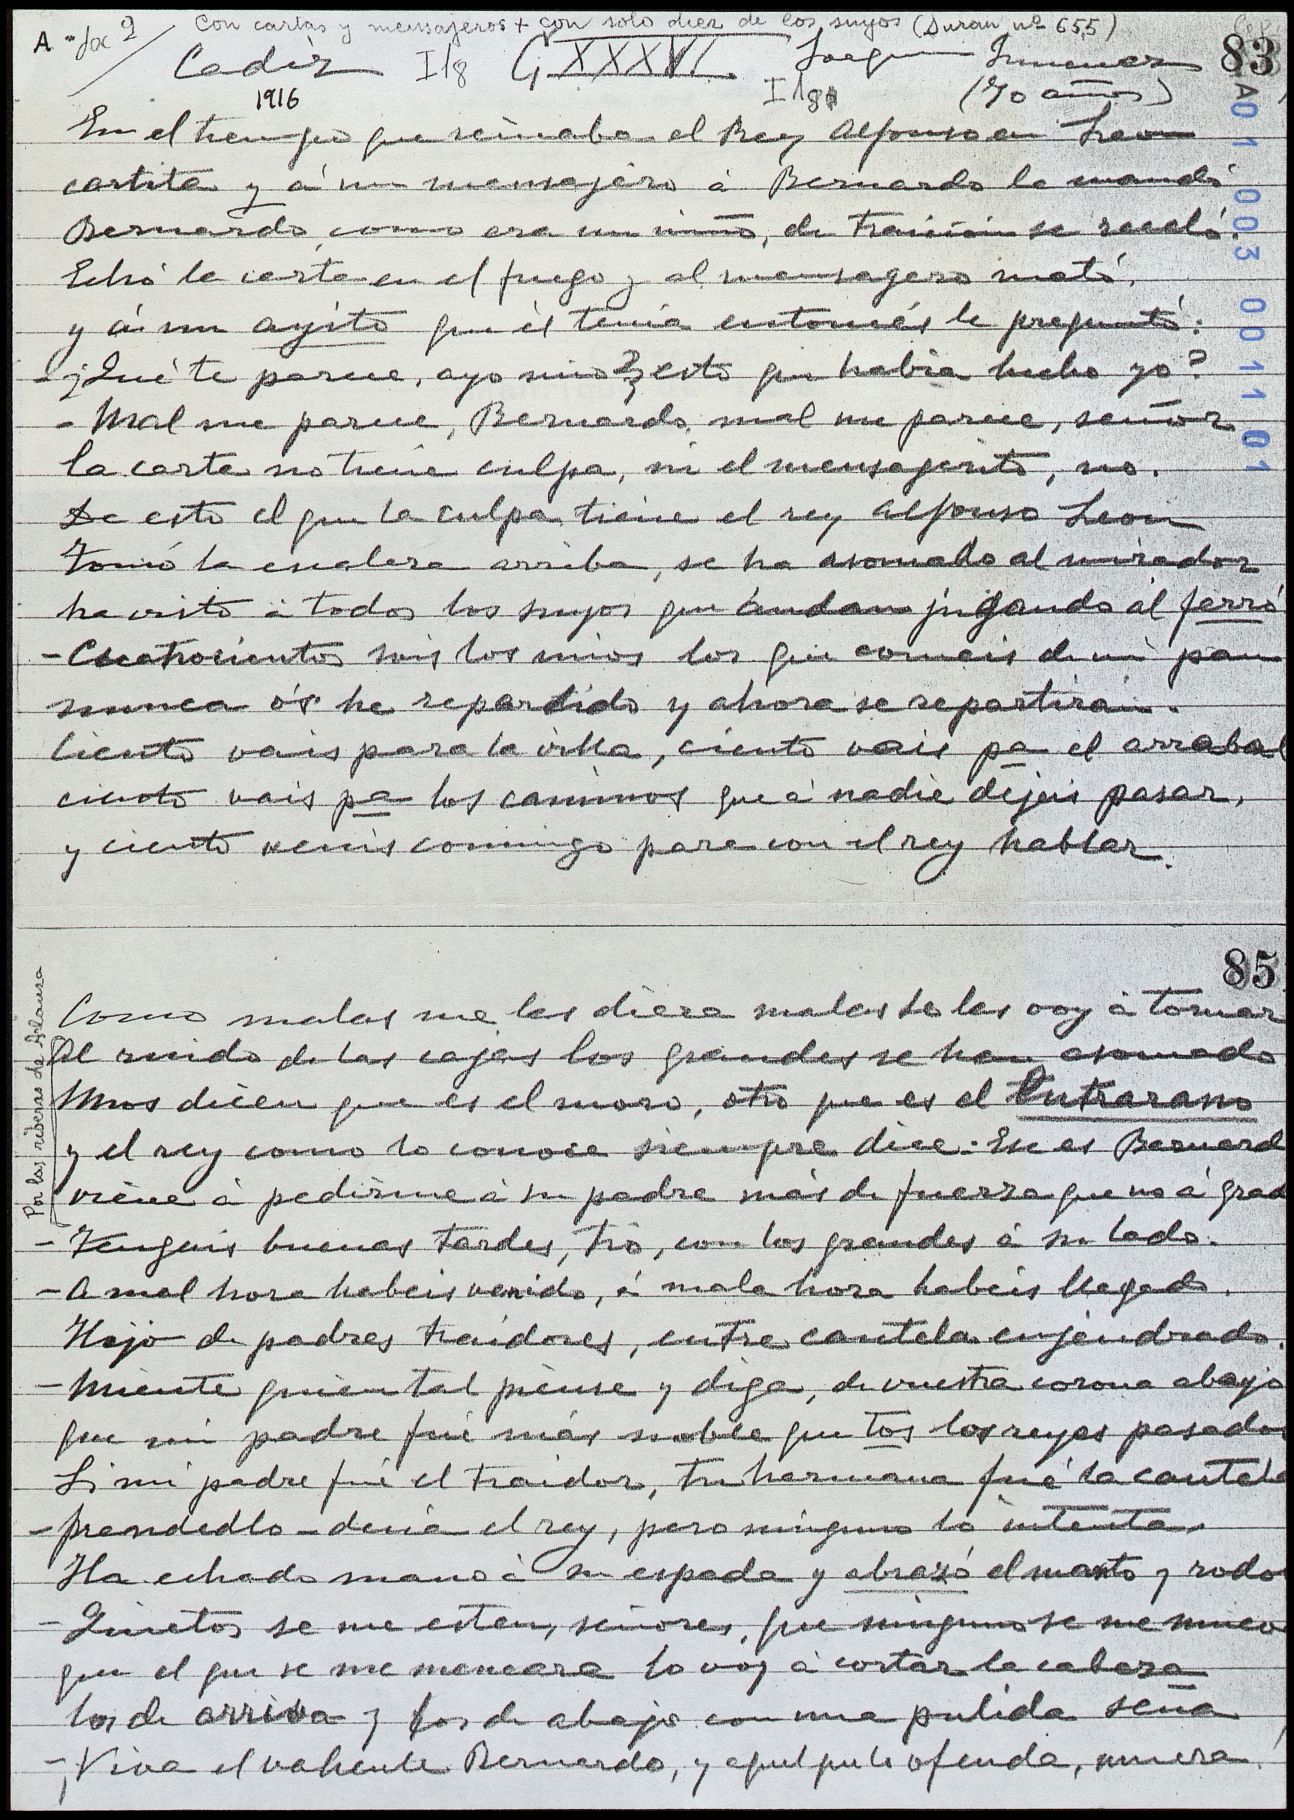 Con cartas y mensajeros + con solo diez de los suyos (Duran nº 655)
A
83
Cadiz I/8 G XXXVI. Joaquin Jimenez
1916 I/8 (70 años)
A01 003 0011 01
En el tiempo que reinaba el Rey Alfonso en Leon
cartita y á un mensajero á Bernardo le mandó
Bernardo, como era un niño, de traicion se receló.
Echó la carta en el fuego y al mensagero mató,
y á un ayito que él tenia entonces le preguntó:
- ¿Qué te parece, ayo mio? ¿esto que habia hecho yo?
- Mal me parece, Bernardo, mal me parece, señor
la carta no tiene culpa, ni el mensajerito, no.
De esto el que la culpa tiene el rey Alfonso Leon
Tomó la escalera arriba, se ha asomado al mirador
ha visto á todos los suyos que andan jugando al ferró
- Cuatrocientos sois los mios los que comeis de mi pan
nunca os he repartido y ahora se repartirán.
Ciento vais para la villa, ciento vais pa el arrabal
ciento vais pa los caminos que á nadie dejeis pasar,
y ciento venis conmigo para con el rey hablar.
85
Por las riberas de Arlanza
Como malas me las diera malas se las voy á tomar
Al ruido de las cajas los grandes se han asomado
Unos dicen que es el moro, otro que es el Lutrarano
y el rey como lo conoce siempre dice: Ese es Bernard
viene á pedirme á su padre más de fuerza que no á grad
- Tengais buenas tardes, tio, con los grandes á su lado.
- A mal hora habeis venido, á mala hora habeis llegado.
Hijo de padres traidores, entre cautela enjendrado.
- Miente quien tal piense y diga, de vuestra corona abajo
que mi padre fué más noble que tos los reyes pasados
Si mi padre fué el traidor, tu hermana fué la cautela
- Prendedlo - decia el rey, pero ninguno lo intenta.
Ha echado mano á su espada y abrazó el manto y rodo
- Quietos se me esten, señores, que ninguno se me muev
que el que se me meneara lo voy á cortar la cabeza
los de arriva y los de abajo con una pulida seña
- ¡Viva el valiente Bernardo, y aquel que le ofenda, muera!